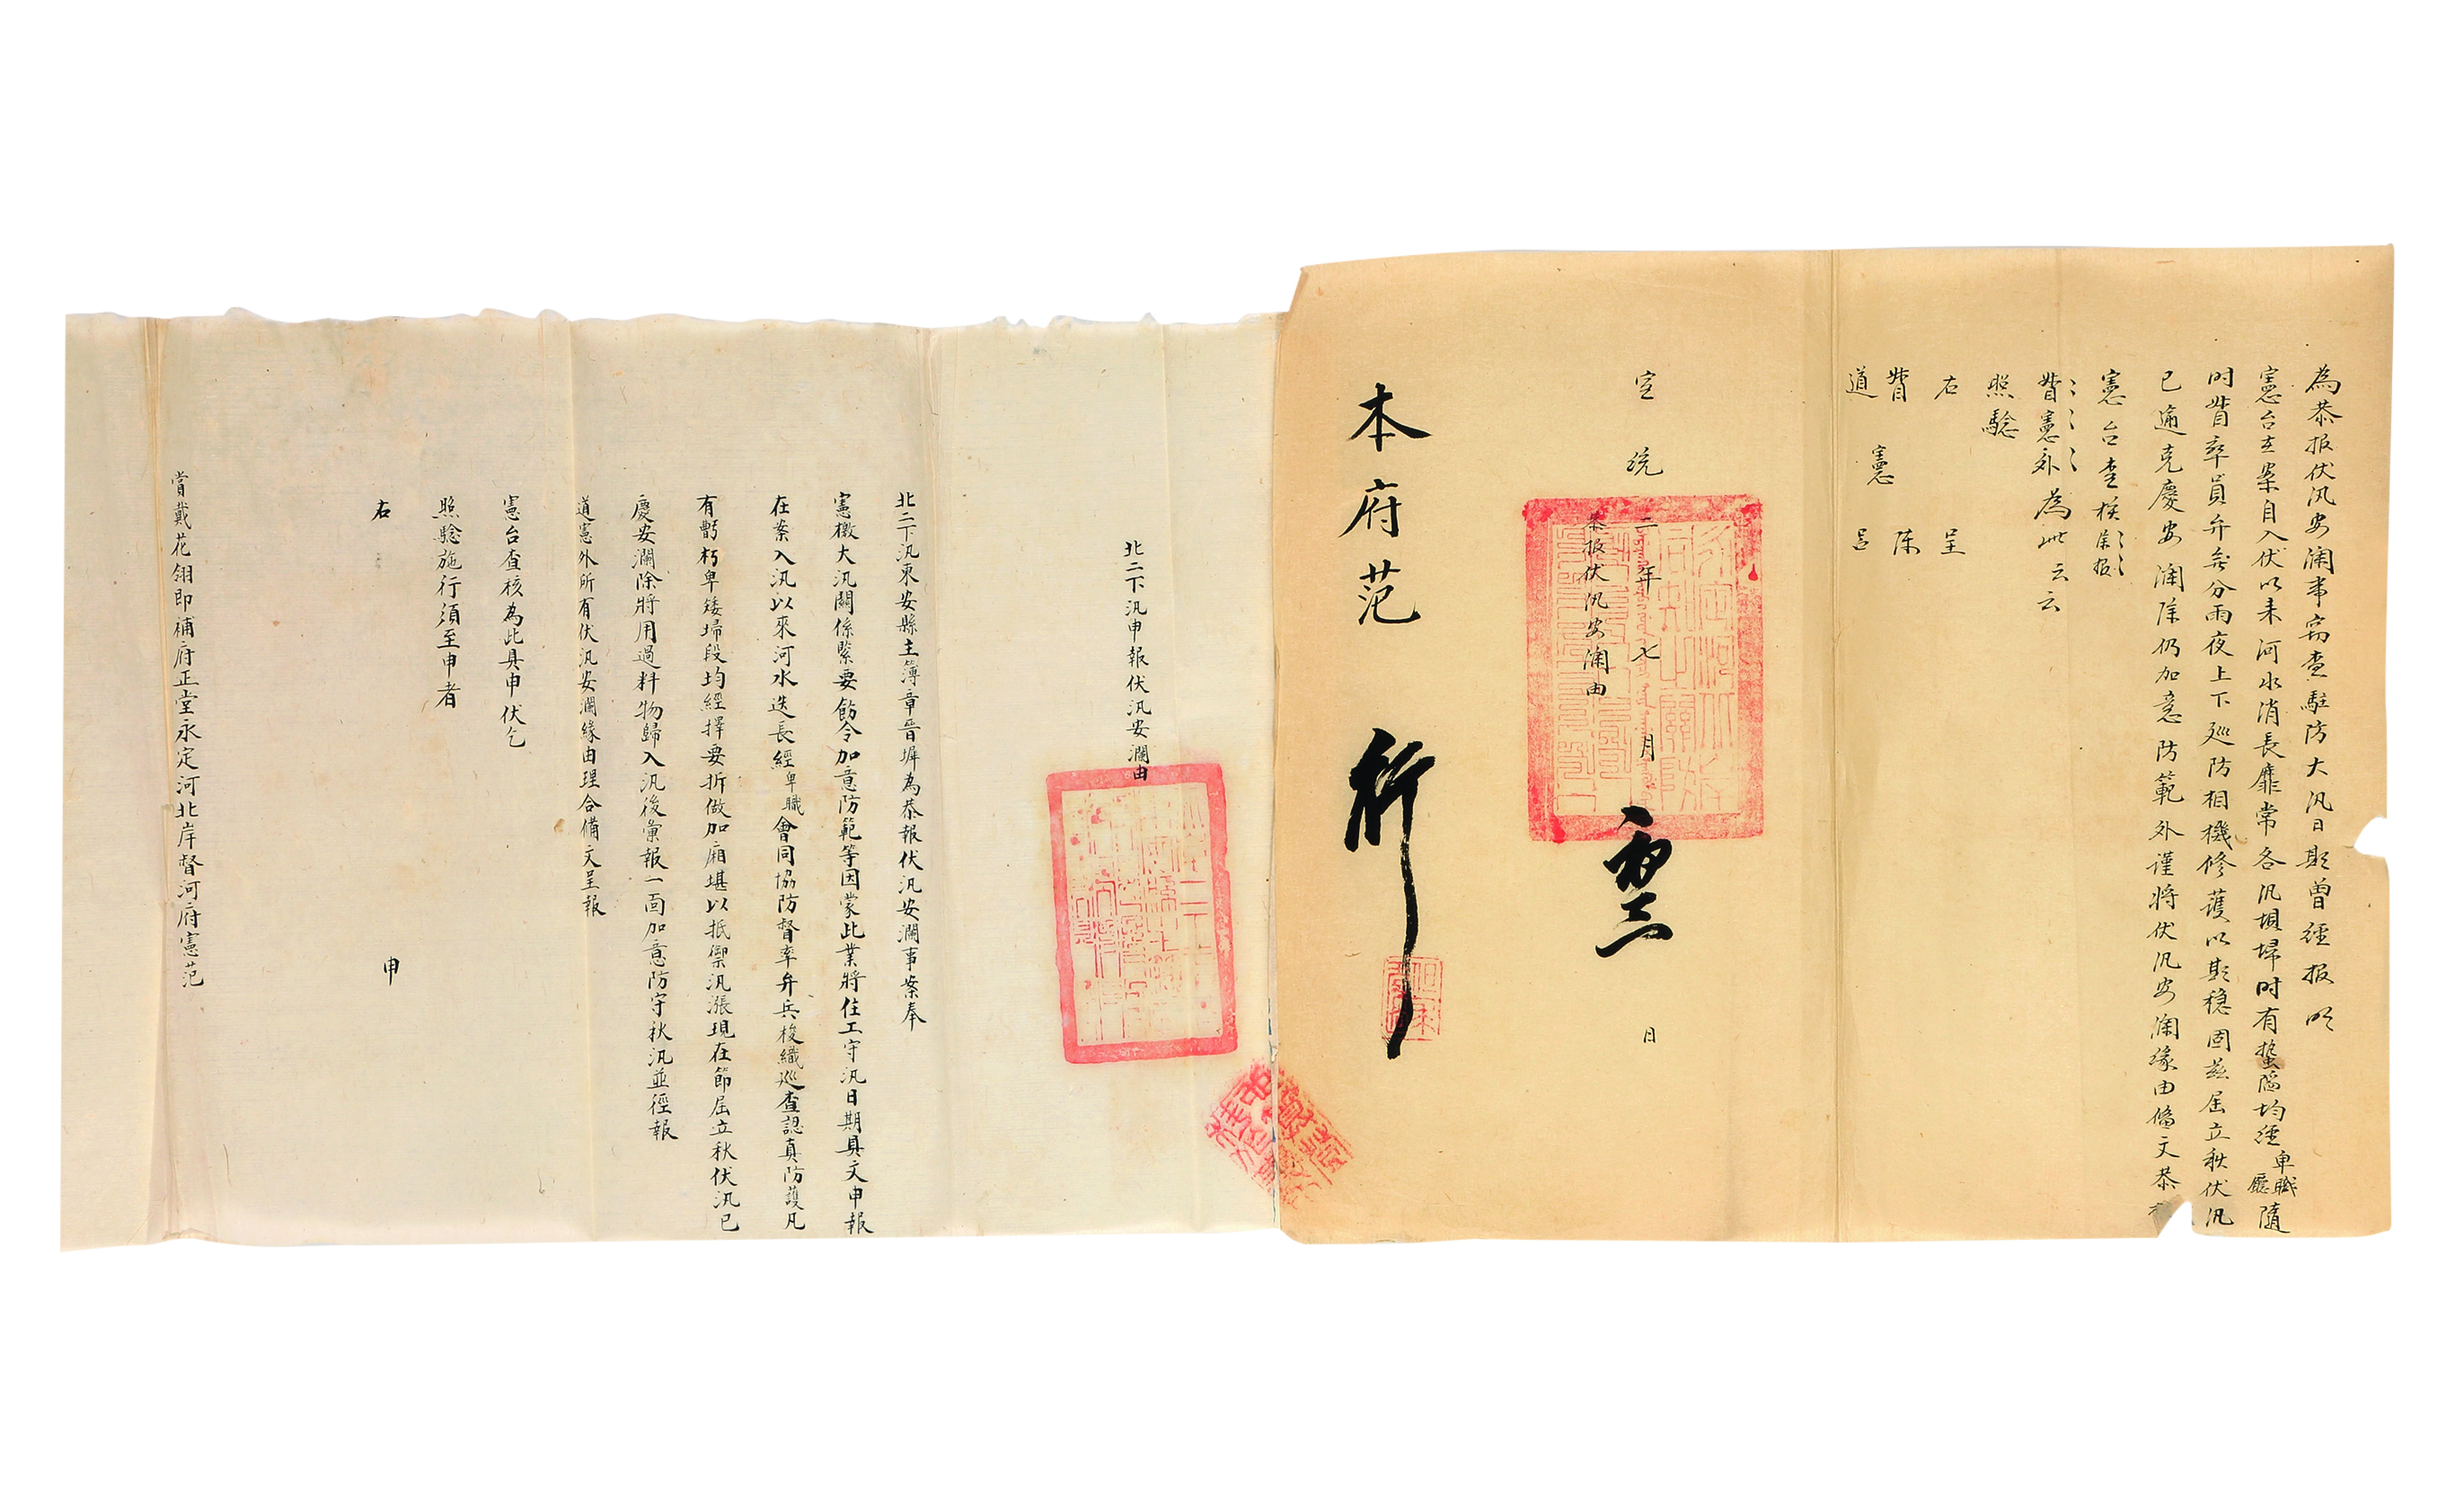 為恭报伏汛安澜事窃查駐防大汛日期曾經报明
憲台在案自入伏以来河水消長靡常各汛垻埽时有蟄陷均經卑職廳隨
时督率員弁兵分雨夜上下廵防相機修護以期穏固兹届立秋伏汛
已過克慶安澜除仍加意防範外谨将伏汛安澜缘由俻文恭
憲台查核
督憲外為此云云
照驗
右 呈
督 陳
憲
道 吕
宣統二年七月 日
恭报伏汛安澜由
本府范 行
北二下汛申報伏汛安瀾由
北二下汛東安縣主簿章晋墀為恭報伏汛安瀾事案奉
憲檄大汛關係緊要飭令加意防範等因蒙此業將住工守汛日期具文申報
在案入汛以來河水迭長經卑職會同協防督率弁兵梭織廵查認真防護凡
有蟄朽卑矮埽段均經擇要拆做加廂堪以抵禦汛漲現在節屆立秋伏汛已
慶安瀾除將用過料物歸入汛後彙報一面加意防守秋汛並徑報
道憲外所有伏汛安瀾緣由理合備文呈報
憲台查核為此具申伏乞
照驗施行須至申者
右 申
賞戴花翎即補府正堂永定河北岸督河府憲范